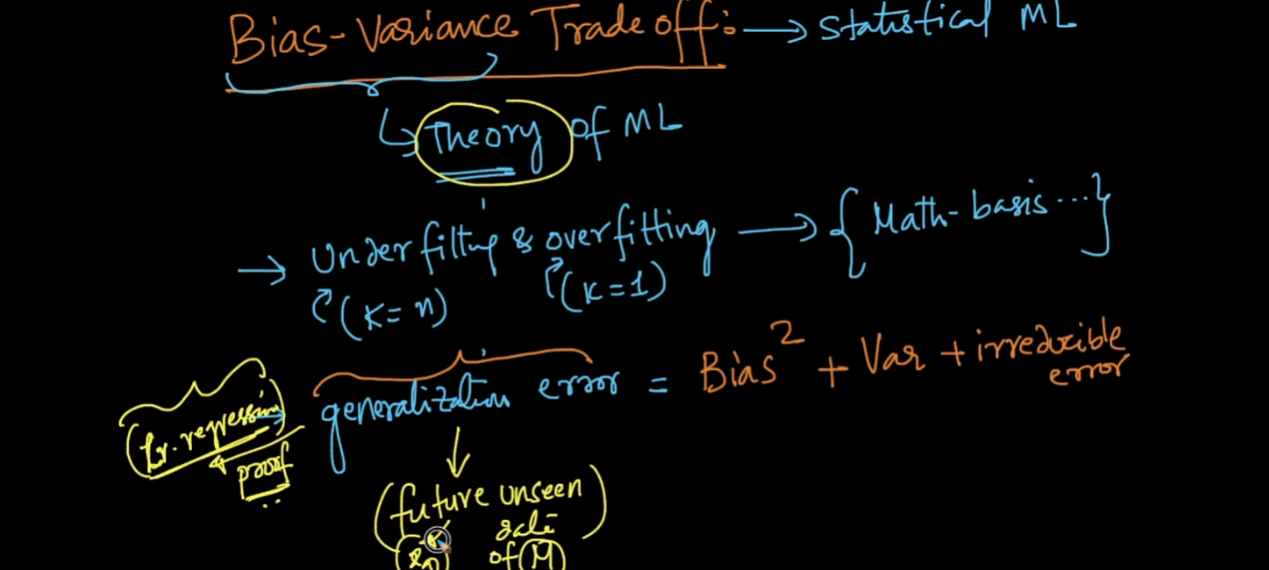 Bias-Variance Trade off: → Statistical ML
↳ Theory of ML
→ Underfitting & overfitting → { Math-basis ... }
(K = n) (K = 1)
(Lr. regression) generalization error = Bias² + Var + irreducible error
proof
(future unseen
data)
of M